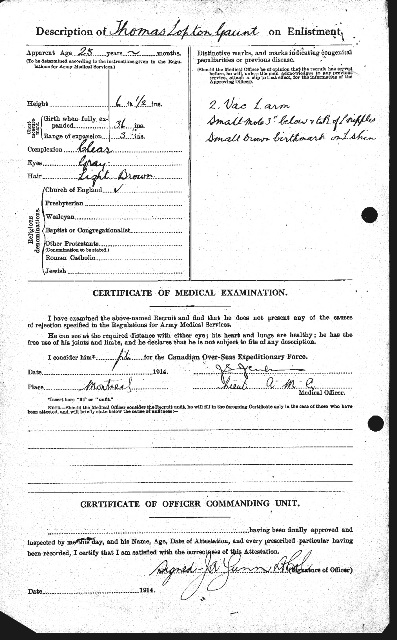 Description of Thomas Lopton Gaunt on Enlistment
Apparent Age 25 years ~ months.
(To be determined according to the instructions given in the Regulations for Army Medical Services.)
Height 6 ft. 1/2 ins.
Girth when fully expanded 36 ins.
Range of expansion 3 ins.
Complexion Clear
Eyes Gray
Hair Light Brown
Religious denominations.
Church of England ✓
Presbyterian
Wesleyan
Baptist or Congregationalist
Other Protestants
(Denomination to be stated.)
Roman Catholic
Jewish
Distinctive marks, and marks indicating congenital
peculiarities or previous disease.
(Should the Medical Officer be of opinion that the recruit has served before, he will, unless the man acknowledges to any previous service, attach a slip to that effect, for the information of the Approving Officer).
2. Vac L arm
Small mole 3" below & left of l nipple
Small brown birthmark on L shin
CERTIFICATE OF MEDICAL EXAMINATION.
I have examined the above-named Recruit and find that he does not present any of the causes
of rejection specified in the Regulations for Army Medical Services.
He can see at the required distance with either eye; his heart and lungs are healthy; he has the
free use of his joints and limbs, and he declares that he is not subject to fits of any description.
I consider him* fit for the Canadian Over-Seas Expeditionary Force.
Date 1914.
Place Montreal
Lieut A M C
Medical Officer.
*Insert here "fit" or "unfit."
NOTE.—Should the Medical Officer consider the Recruit unfit, he will fill in the foregoing Certificate only in the case of those who
have been attested, and will briefly state below the cause of unfitness:—
CERTIFICATE OF OFFICER COMMANDING UNIT.
having been finally approved and
inspected by me this day, and his Name, Age, Date of Attestation, and every prescribed particular having
been recorded, I certify that I am satisfied with the correctness of this Attestation.
Signed (Signature of Officer)
Date 1914.